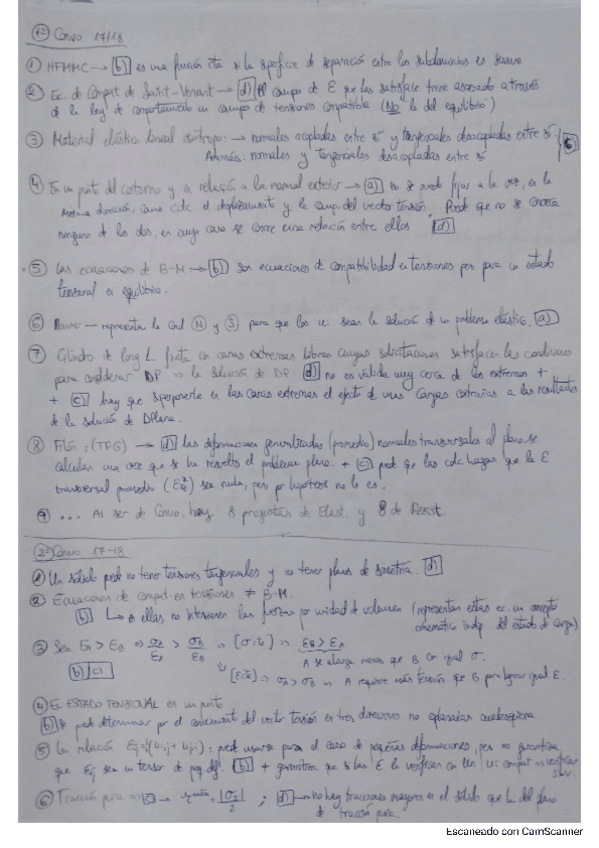 1ª Convo 17/18
① HFMMC → b) es una función cte si la superficie de separación entre los subdominios es suave
② Ec. de Compat de Saint-Venant → d) El campo de E que las satisface tiene asociado a través
de la ley de comportamiento un campo de tensiones compatible (No la del equilibrio)
③ Material elástico lineal isótropo: → normales acopladas entre sí y tangenciales desacopladas entre sí
Además: normales y tangenciales desacopladas entre sí
④ En un punto del contorno y en relación a la normal exterior → a) no se puede fijar a la vez, en la
misma dirección, como cdc el desplazamiento y la comp. del vector tensión. Puede que no se conozca
ninguno de los dos, en cuyo caso se conoce una relación entre ellos d)
⑤ Las ecuaciones de B-M → b) son ecuaciones de compatibilidad en tensiones pero para un estado
tensional en equilibrio.
⑥ Navier — representa la cond N y S para que los ui sean la solución de un problema elástico. a)
⑦ Cilindro de long L finita con caras extremas libres cuyas solicitaciones satisfacen las condiciones
para considerar DP → la solución de DP d) no es válida muy cerca de los extremos +
+ c) hay que superponerle en las caras extremas el efecto de unas cargas contrarias a las resultantes
de la solución de DPlana.
⑧ Filón: (TPG) → d) las deformaciones generalizadas (promedio) normales transversales al plano se
calculan una vez que se ha resuelto el problema plano. + c) puede que las cdc hagan que la E
transversal promedio sea nula, pero por hipótesis no lo es.
⑨ ... Al ser de Convo, hay 8 preguntas de Elast. y 8 de Resist.
2ª Convo 17-18
① Un sólido puede no tener tensiones tangenciales y no tener planos de simetría. d)
② Ecuaciones de compat. en tensiones ≠ B-M.
b) ↳ en ellas no intervienen las fuerzas por unidad de volumen (representan estas ec. un concepto
cinemático indep. del estado de carga)
③ Sea EA > EB
A se alarga menos que B con igual σ.
b) c) ⇒ σA > σB ⇒ A requiere más tensión que B para lograr igual E.
④ El ESTADO TENSIONAL en un punto
b) se puede determinar por el conocimiento del vector tensión en tres direcciones no coplanarias cualesquiera
⑤ La relación Eij=½(ui,j + uj,i): puede usarse para el caso de pequeñas deformaciones, pero no garantiza
que Eij sea un tensor de peq. def. b) + garantiza que si las E la verifican con un ui compat ⇒ verifican
S-V
⑥ Tracción pura ; d) → no hay tracciones mayores en el sólido que la del plano
de tracción pura.
Escaneado con CamScanner